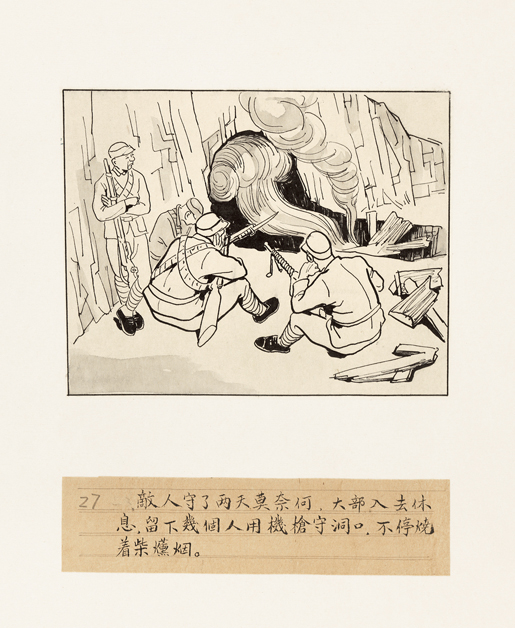 27 敵人守了两天莫奈何，大部入去休
息，留下幾個人用機槍守洞口，不停燒
着柴燻烟。